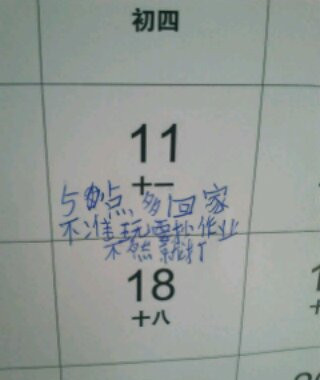 初四
11
十一
5点多回家
不准玩要补作业
不然就打
18
十八